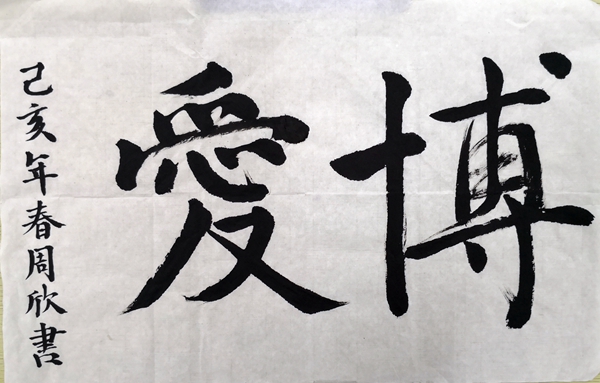 博愛
己亥年春周欣書